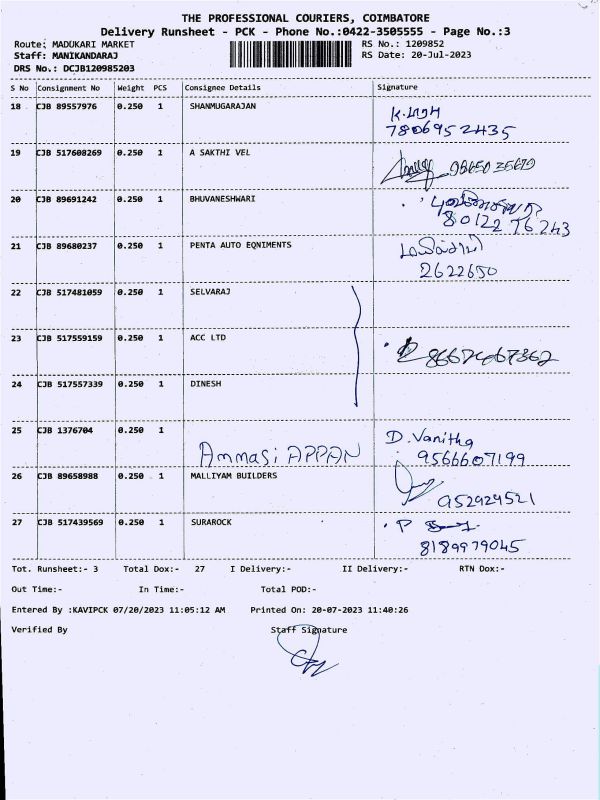 THE PROFESSIONAL COURIERS, COIMBATORE
Delivery Runsheet - PCK - Phone No.:0422-3505555 - Page No.:3
Route: MADUKARI MARKET RS No.: 1209852
Staff: MANIKANDARAJ RS Date: 20-Jul-2023
DRS No.: DCJB120985203
S No Consignment No Weight PCS Consignee Details Signature
18 CJB 89557976 0.250 1 SHANMUGARAJAN
7806952435
19 CJB 517608269 0.250 1 A SAKTHI VEL
20 CJB 89691242 0.250 1 BHUVANESHWARI
80122 76243
21 CJB 89680237 0.250 1 PENTA AUTO EQNIMENTS
2622650
22 CJB 517481059 0.250 1 SELVARAJ
23 CJB 517559159 0.250 1 ACC LTD
24 CJB 517557339 0.250 1 DINESH
25 CJB 1376704 0.250 1
Ammasi APPAN D. Vanitha
9566607199
26 CJB 89658988 0.250 1 MALLIYAM BUILDERS
952929521
27 CJB 517439569 0.250 1 SURAROCK
8189979045
Tot. Runsheet:- 3 Total Dox:- 27 I Delivery:- II Delivery:- RTN Dox:-
Out Time:- In Time:- Total POD:-
Entered By :KAVIPCK 07/20/2023 11:05:12 AM Printed On: 20-07-2023 11:40:26
Verified By Staff Signature